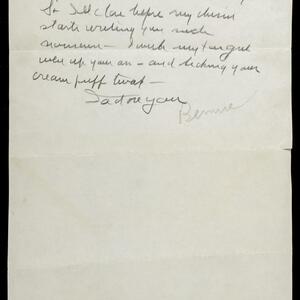 So I'll close before my desire
starts writing you such
nonsense – I wish my tongue
were up your ass – and licking your
cream puff twat –
I adore you
Bernie